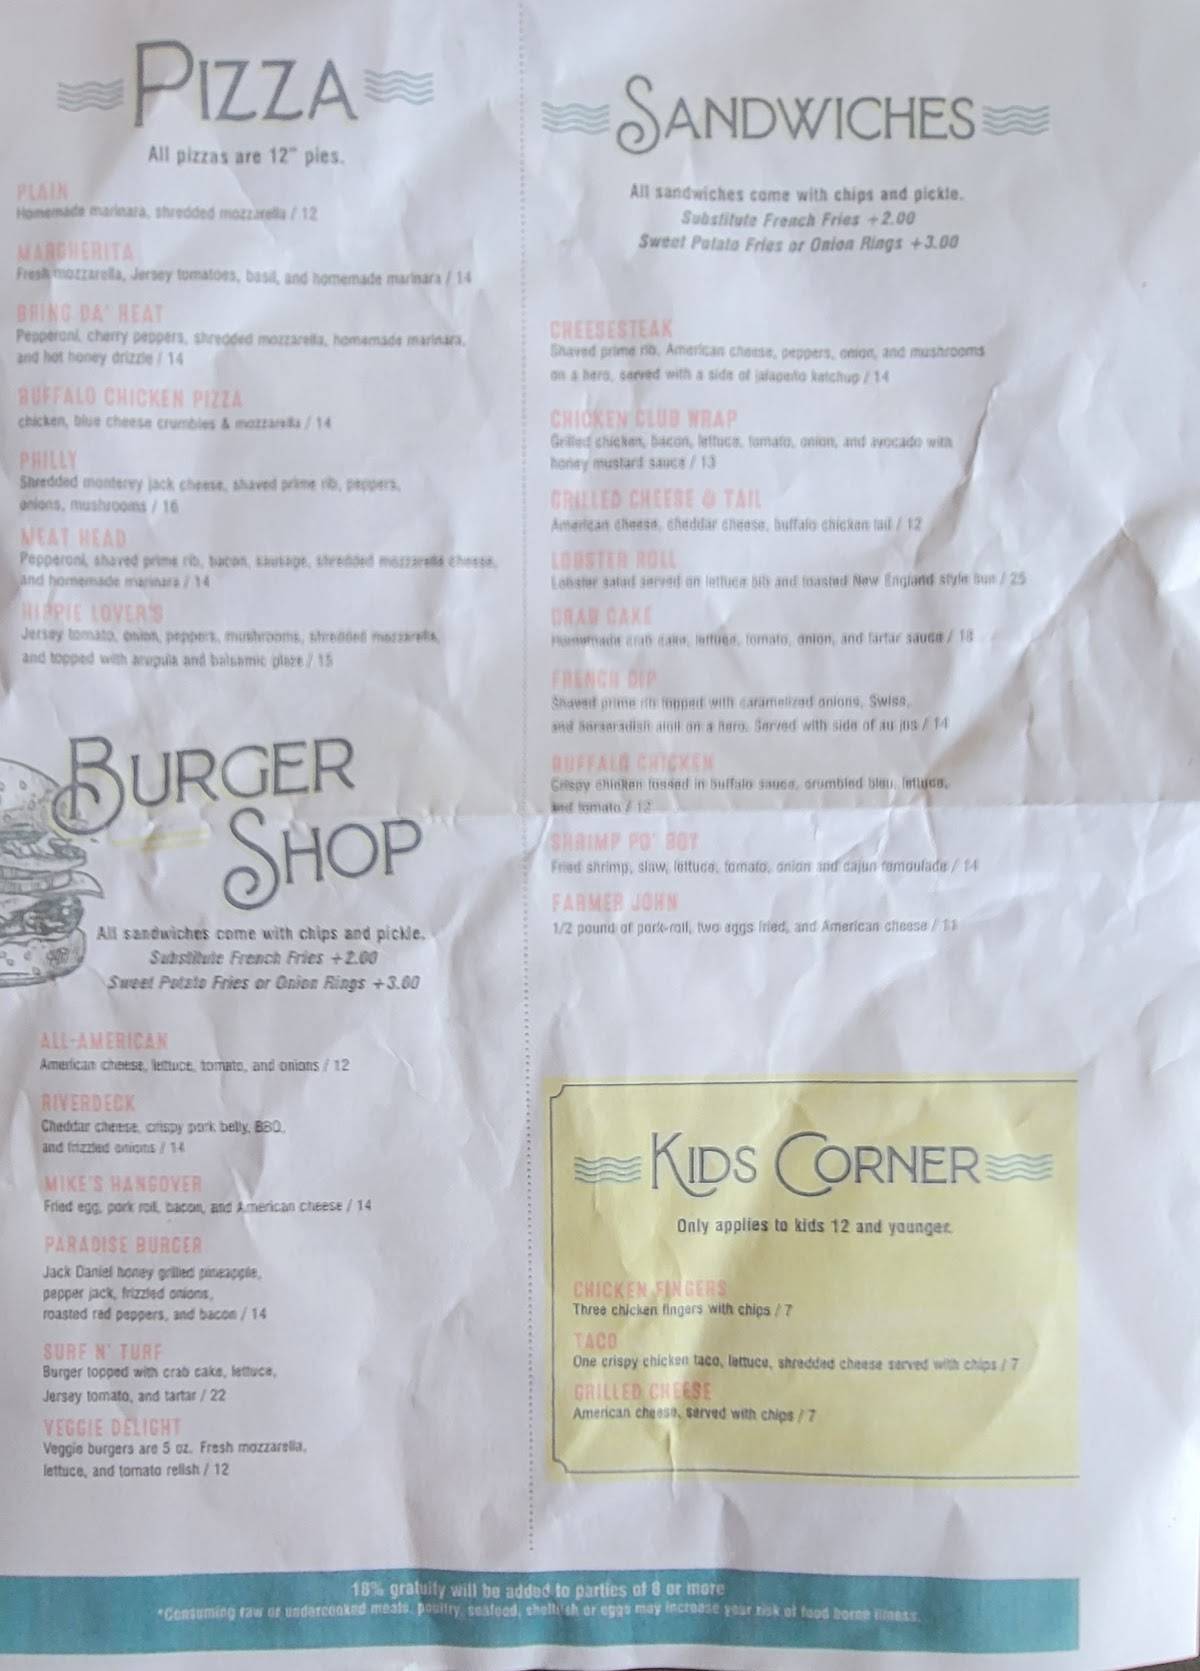 PIZZA
All pizzas are 12" pies.
PLAIN
Homemade marinara, shredded mozzarella / 12
MARGHERITA
Fresh mozzarella, Jersey tomatoes, basil, and homemade marinara / 14
BRING DA' HEAT
Pepperoni, cherry peppers, shredded mozzarella, homemade marinara,
and hot honey drizzle / 14
BUFFALO CHICKEN PIZZA
chicken, blue cheese crumbles & mozzarella / 14
PHILLY
Shredded monterey jack cheese, shaved prime rib, peppers,
onions, mushrooms / 16
MEAT HEAD
Pepperoni, shaved prime rib, bacon, sausage, shredded mozzarella cheese,
and homemade marinara / 14
HIPPIE LOVER'S
Jersey tomato, onion, peppers, mushrooms, shredded mozzarella,
and topped with arugula and balsamic glaze / 15
BURGER
SHOP
All sandwiches come with chips and pickle.
Substitute French Fries +2.00
Sweet Potato Fries or Onion Rings +3.00
ALL-AMERICAN
American cheese, lettuce, tomato, and onions / 12
RIVERDECK
Cheddar cheese, crispy pork belly, BBQ,
and frizzled onions / 14
MIKE'S HANGOVER
Fried egg, pork roll, bacon, and American cheese / 14
PARADISE BURGER
Jack Daniel honey grilled pineapple,
pepper jack, frizzled onions,
roasted red peppers, and bacon / 14
SURF N' TURF
Burger topped with crab cake, lettuce,
Jersey tomato, and tartar / 22
VEGGIE DELIGHT
Veggie burgers are 5 oz. Fresh mozzarella,
lettuce, and tomato relish / 12
SANDWICHES
All sandwiches come with chips and pickle.
Substitute French Fries +2.00
Sweet Potato Fries or Onion Rings +3.00
CHEESESTEAK
Shaved prime rib, American cheese, peppers, onion, and mushrooms
on a hero, served with a side of jalapeño ketchup / 14
CHICKEN CLUB WRAP
Grilled chicken, bacon, lettuce, tomato, onion, and avocado with
honey mustard sauce / 13
GRILLED CHEESE & TAIL
American cheese, cheddar cheese, buffalo chicken tail / 12
LOBSTER ROLL
Lobster salad served on lettuce bib and toasted New England style bun / 25
CRAB CAKE
Homemade crab cake, lettuce, tomato, onion, and tartar sauce / 18
FRENCH DIP
Shaved prime rib topped with caramelized onions, Swiss,
and horseradish aioli on a hero. Served with side of au jus / 14
BUFFALO CHICKEN
Crispy chicken tossed in buffalo sauce, crumbled bleu, lettuce,
and tomato / 12
SHRIMP PO' BOY
Fried shrimp, slaw, lettuce, tomato, onion and cajun remoulade / 14
FARMER JOHN
1/2 pound of pork-roll, two eggs fried, and American cheese /
KIDS CORNER
Only applies to kids 12 and younger.
CHICKEN FINGERS
Three chicken fingers with chips / 7
TACO
One crispy chicken taco, lettuce, shredded cheese served with chips / 7
GRILLED CHEESE
American cheese, served with chips / 7
18% gratuity will be added to parties of 8 or more
*Consuming raw or undercooked meats, poultry, seafood, shellfish or eggs may increase your risk of food borne illness.